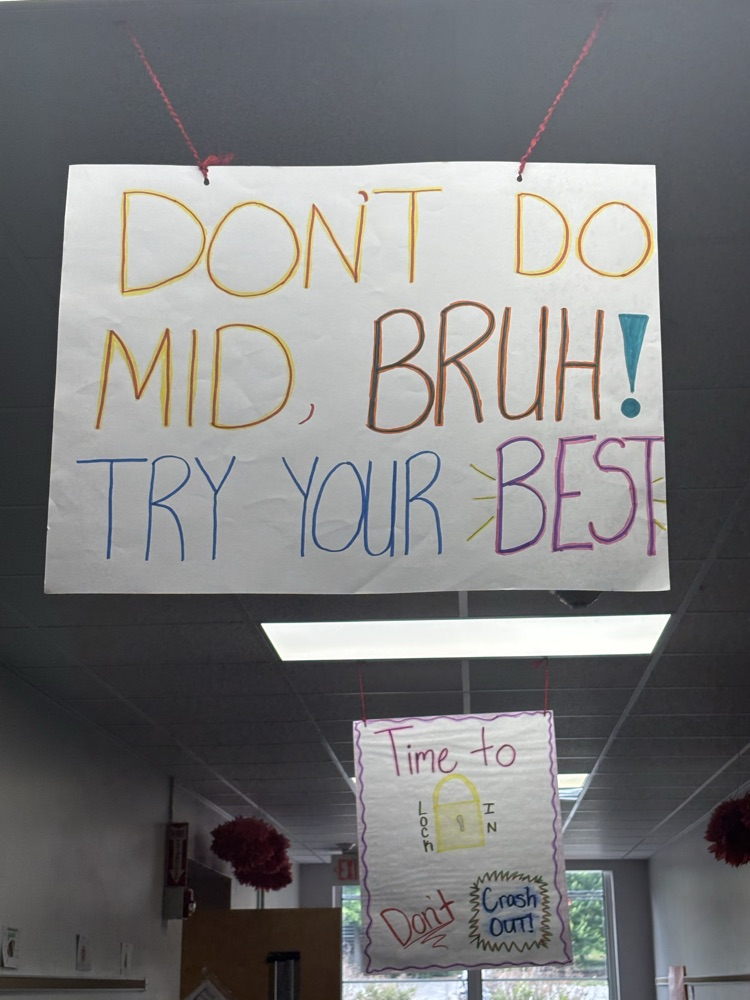 DON'T DO
MID, BRUH!
TRY YOUR BEST
Time to
LOCK IN
Don't Crash
OUT!
EXIT